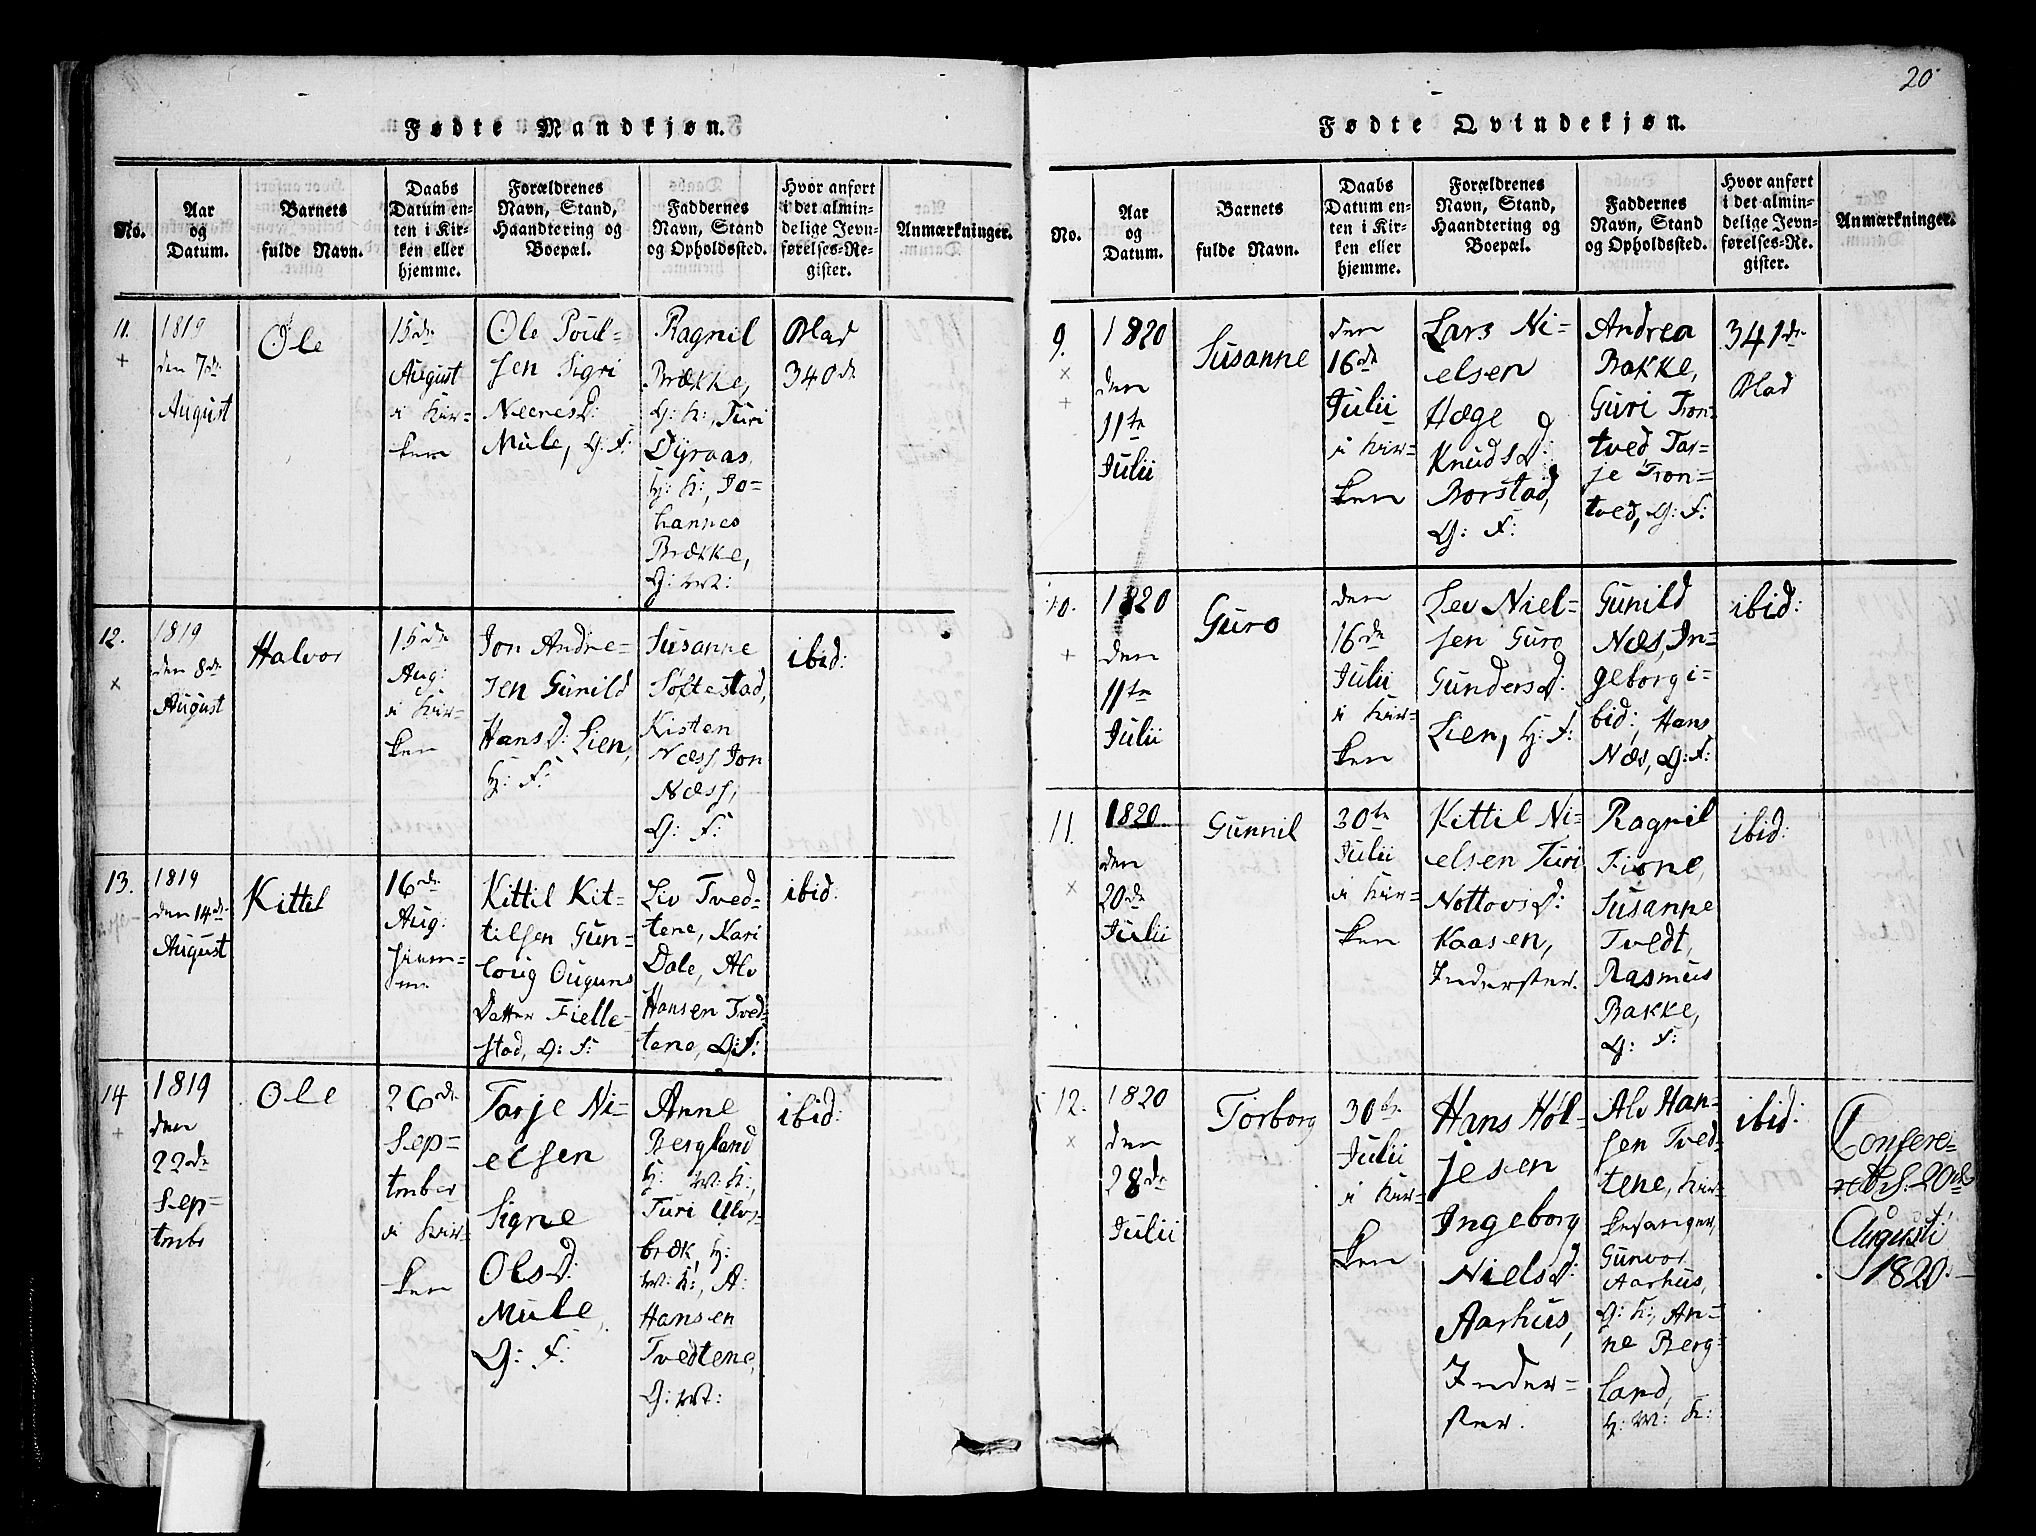 20
Fødte Mandkjøn.
No.
Aar
og
Datum.
Barnets
fulde Navn.
Daabs
Datum en-
ten i Kir-
ken eller
hjemme.
Forældrenes
Navn, Stand,
Haandtering og
Boepæl.
Faddernes
Navn, Stand
og Opholdssted.
Hvor anført
i det almin-
delige Jevn-
førelses-Re-
gister.
Anmærkninger.
11.
1819
den 7de
August
Ole
15de
August
i Kir-
ken
Ole Poul-
sen Sigri
Neeresd:
Mule, G: F:
Ragnil
Brække,
G: K:, Turi
Dyraas
H: K:, Jo-
hannes
Brække,
G: M:
Blad
340de
12.
1819
den 8de
August
Halvor
15de
Aug:
i Kir-
ken
Jon Andre-
sen Gunild
Hansd: Lien,
H: F:
Susanne
Søftestad,
Kisten
Næss, Jon
Næss,
G: F:
ibid:
13.
1819
den 14de
August
Kittil
16de
Aug:
hjem-
me
Kittil Kit-
tilsen Gun-
loug Ouguns
Datter Fielle-
stad, G: F:
Liv Tved-
tene, Kari
Dale, Alv
Hansen Tved-
tene, G: F:
ibid:
14
1819
den
22de
Sep-
tmbr
Ole
26de
Sep-
tmber
i Kir-
ken
Tarje Ni-
elsen
Signe
Olsd:
Mule,
G: F:
Anne
Bergland
H: M: K:,
Turi Ulvs-
bræk, H:
M: K:, A:
Hansen
Tvedtene,
G: M:
ibid:
Fødte Qvindekjøn.
No.
Aar
og
Datum.
Barnets
fulde Navn.
Daabs
Datum en-
ten i Kir-
ken eller
hjemme.
Forældrenes
Navn, Stand,
Haandtering og
Boepæl.
Faddernes
Navn, Stand
og Opholdssted.
Hvor anført
i det almin-
delige Jevn-
førelses-Re-
gister.
Anmærkninger.
9.
1820
den
11te
Julii
Susanne
den
16de
Julii
i Kir-
ken
Lars Ni-
elsen
Hæge
Knudsd:
Borstad,
G: F:
Andrea
Bakke,
Guri Tron-
tved Tar-
je Tron-
tved, G: F:
341de
Blad
10.
1820
den
11te
Julii
Guro
den
16de
Julii
i Kir-
ken
Lev Niel-
sen Guro
Gundersd:
Lien, H: F:
Gunild
Næs, In-
geborg i-
bid:, Hans
Næs, G: F:
ibid:
11.
1820
den
20de
Julii
Gunnil
30te
Julii
i Kir-
ken
Kittil Ni-
elsen Turi
Nottovsd:
Kaasen,
Inderster.
Ragnil
Fione,
Susanne
Tvedt,
Rasmus
Bakke,
G: F:
ibid:
12.
1820
den
28de
Julii
Torborg
30te
Julii
i Kir-
ken
Hans Høl-
jesen
Ingeborg
Nielsd:
Aarhus,
Inder-
ster.
Alv Han-
sen Tved-
tene, Kir-
kesanger,
Gunvor
Aarhus,
G: K:, An-
ne Berg-
land,
H: M: K:
ibid:
Confere-
20de
Augusti
1820.